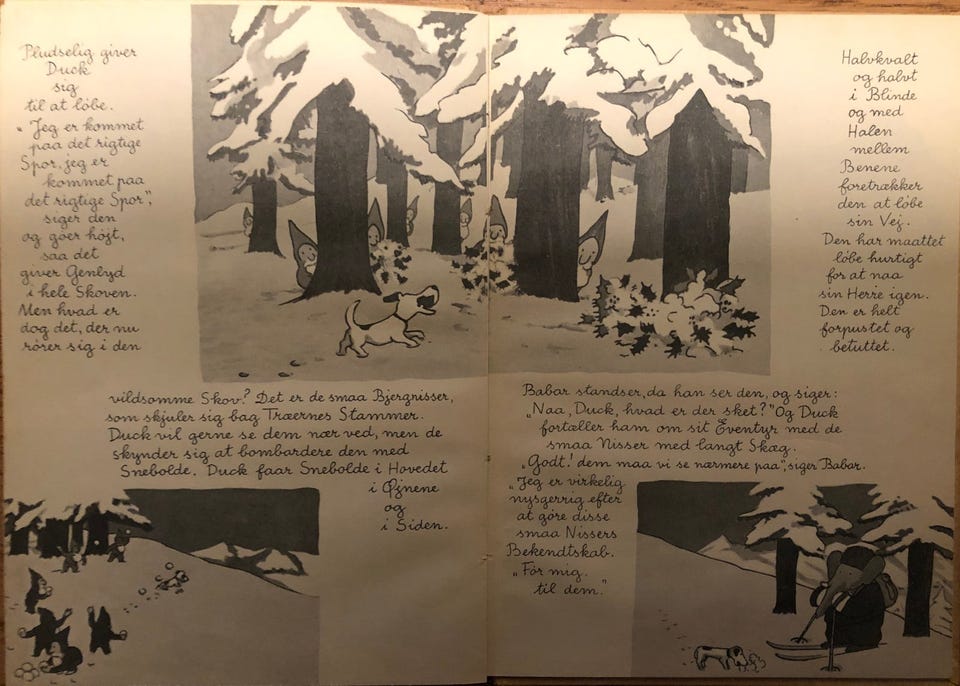 Pludselig giver
Duck
sig
til at løbe.
„Jeg er kommet
paa det rigtige
Spor, jeg er
kommet paa
det rigtige Spor”,
siger den
og gøer højt,
saa det
giver Genlyd
i hele Skoven.
Men hvad er
dog det, der nu
rører sig i den
vildsomme Skov? Det er de smaa Bjergnisser,
som skjuler sig bag Træernes Stammer.
Duck vil gerne se dem nær ved, men de
skynder sig at bombardere den med
Snebolde. Duck faar Snebolde i Hovedet
i Øjnene
og
i Siden.
Halvkvalt
og halvt
i Blinde
og med
Halen
mellem
Benene
foretrækker
den at løbe
sin Vej.
Den har maattet
løbe hurtigt
for at naa
sin Herre igen.
Den er helt
forpustet og
betuttet.
Babar standser, da han ser den, og siger:
„Naa, Duck, hvad er der sket?” Og Duck
fortæller ham om sit Eventyr med de
smaa Nisser med langt Skæg.
„Godt! dem maa vi se nærmere paa”, siger Babar.
„Jeg er virkelig
nysgerrig efter
at gøre disse
smaa Nissers
Bekendtskab.
„Før mig
til dem.”